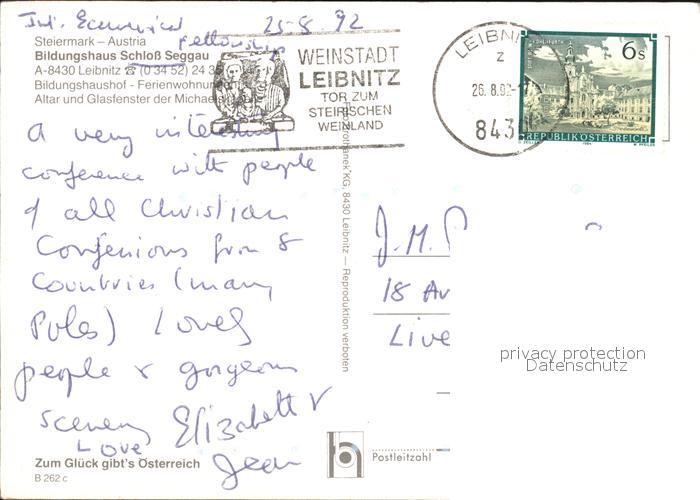 Int. Ecumenical 25-8-92
Fellowship
Steiermark – Austria
Bildungshaus Schloß Seggau
A-8430 Leibnitz ☎ (0 34 52) 24 35
Bildungshaushof - Ferienwohnun
Altar und Glasfenster der Michae
WEINSTADT
LEIBNITZ
TOR ZUM
STEIRISCHEN
WEINLAND
LEIBNI
z
26. 8. 92-
843
6s
REPUBLIK ÖSTERREICH
A very interesting
conference with people
of all Christian
Confessions from 8
Countries (many
Poles) Lovely
people & gorgeous
scenery Elizabeth &
Love Jean
KG, 8430 Leibnitz — Reproduktion verboten
J.M.
18 Av
Live
privacy protection
Datenschutz
Postleitzahl
Zum Glück gibt's Österreich
B 262 c